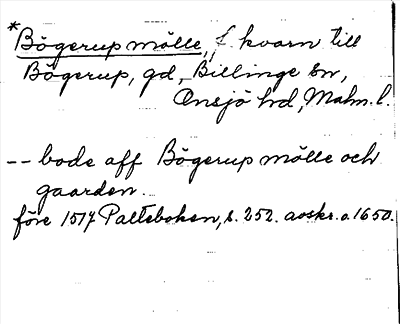 *Bögerup mölle, f. kvarn till
Bögerup, gd, Billinge sn,
Onsjö hd, Malm. l.
-- bode aff Bögerup mölle och
gaarden.
före 1517 Palteboken, s. 252. avskr. o. 1650.